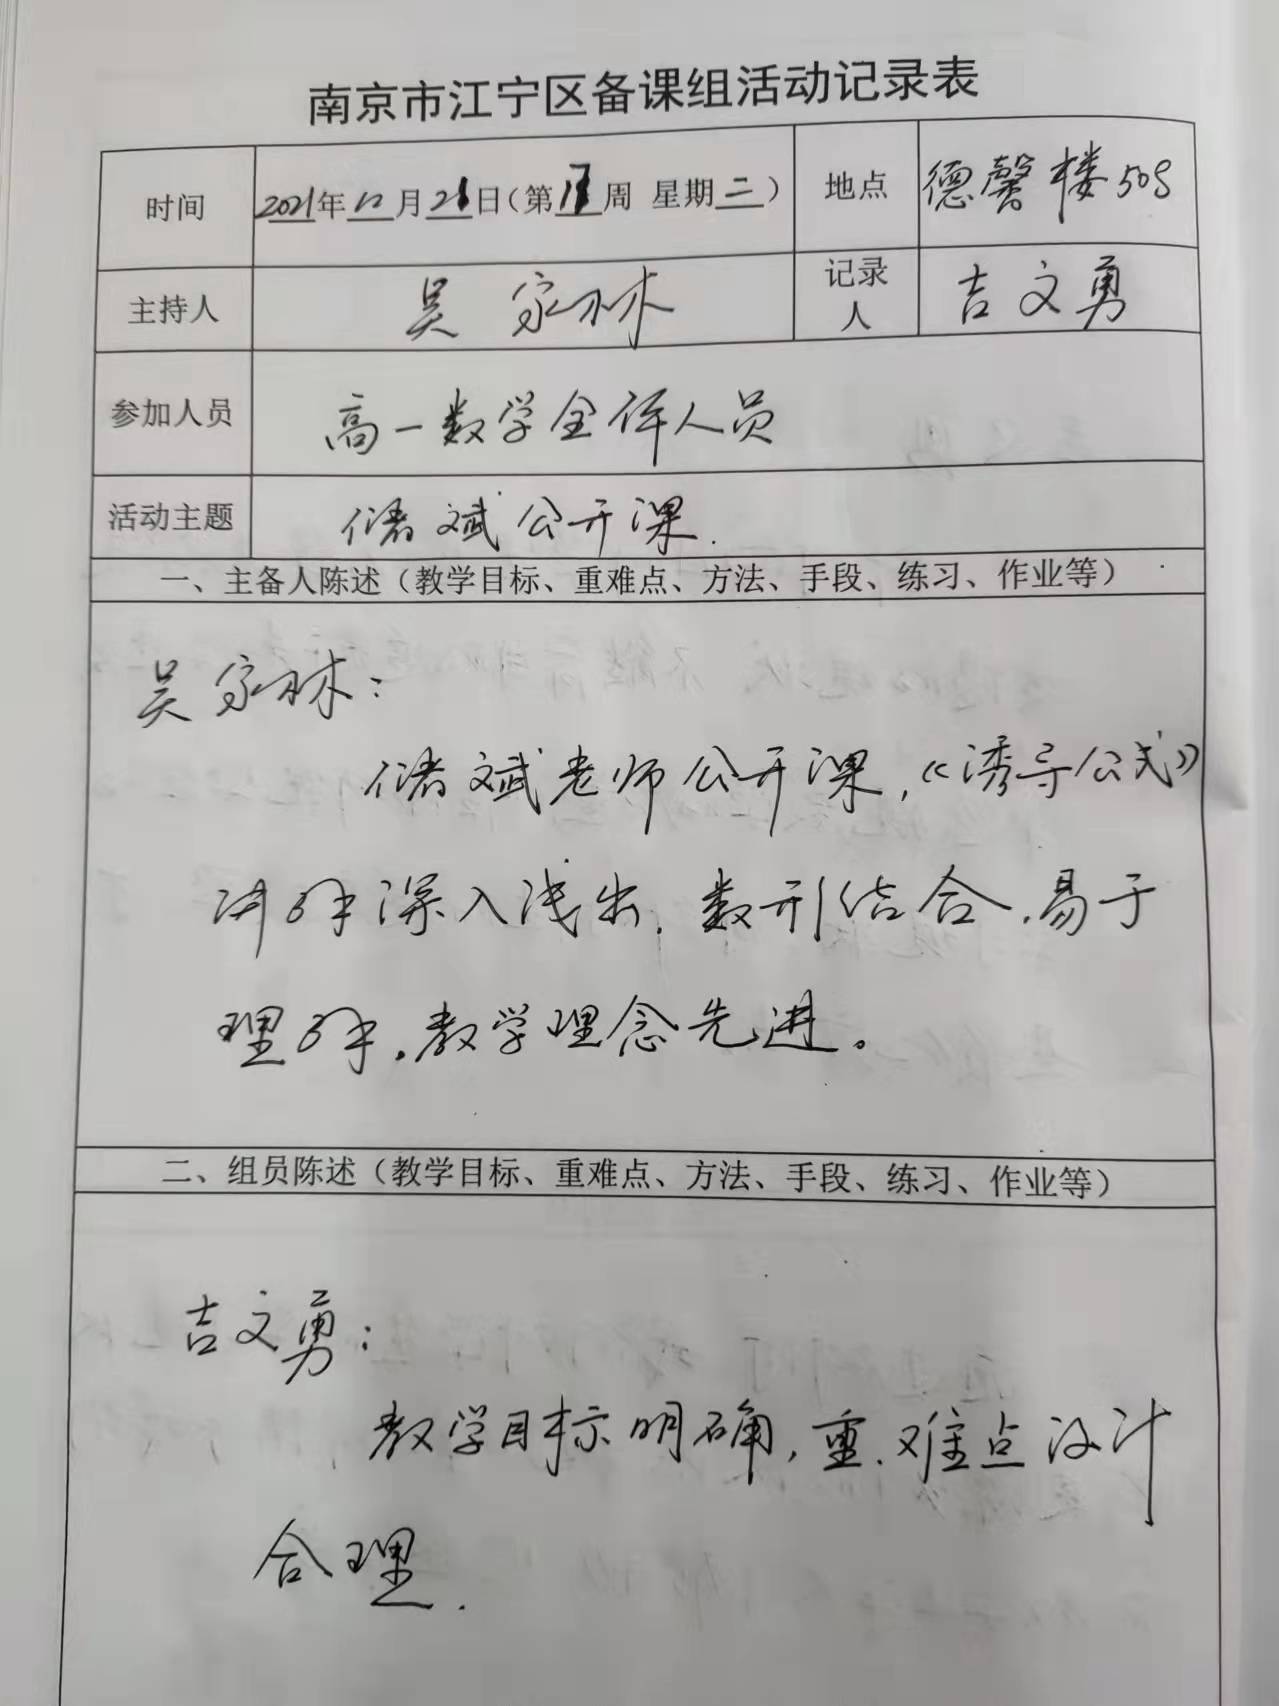 南京市江宁区备课组活动记录表
时间 2021年12月21日(第17周 星期二) 地点 德馨楼505
主持人 吴家林 记录人 吉文勇
参加人员 高一数学全体人员
活动主题 储斌公开课.
一、主备人陈述（教学目标、重难点、方法、手段、练习、作业等）
吴家林：
储斌老师公开课，《诱导公式》
讲解深入浅出，数形结合，易于
理解，教学理念先进。
二、组员陈述（教学目标、重难点、方法、手段、练习、作业等）
吉文勇：
教学目标明确，重、难点设计
合理.